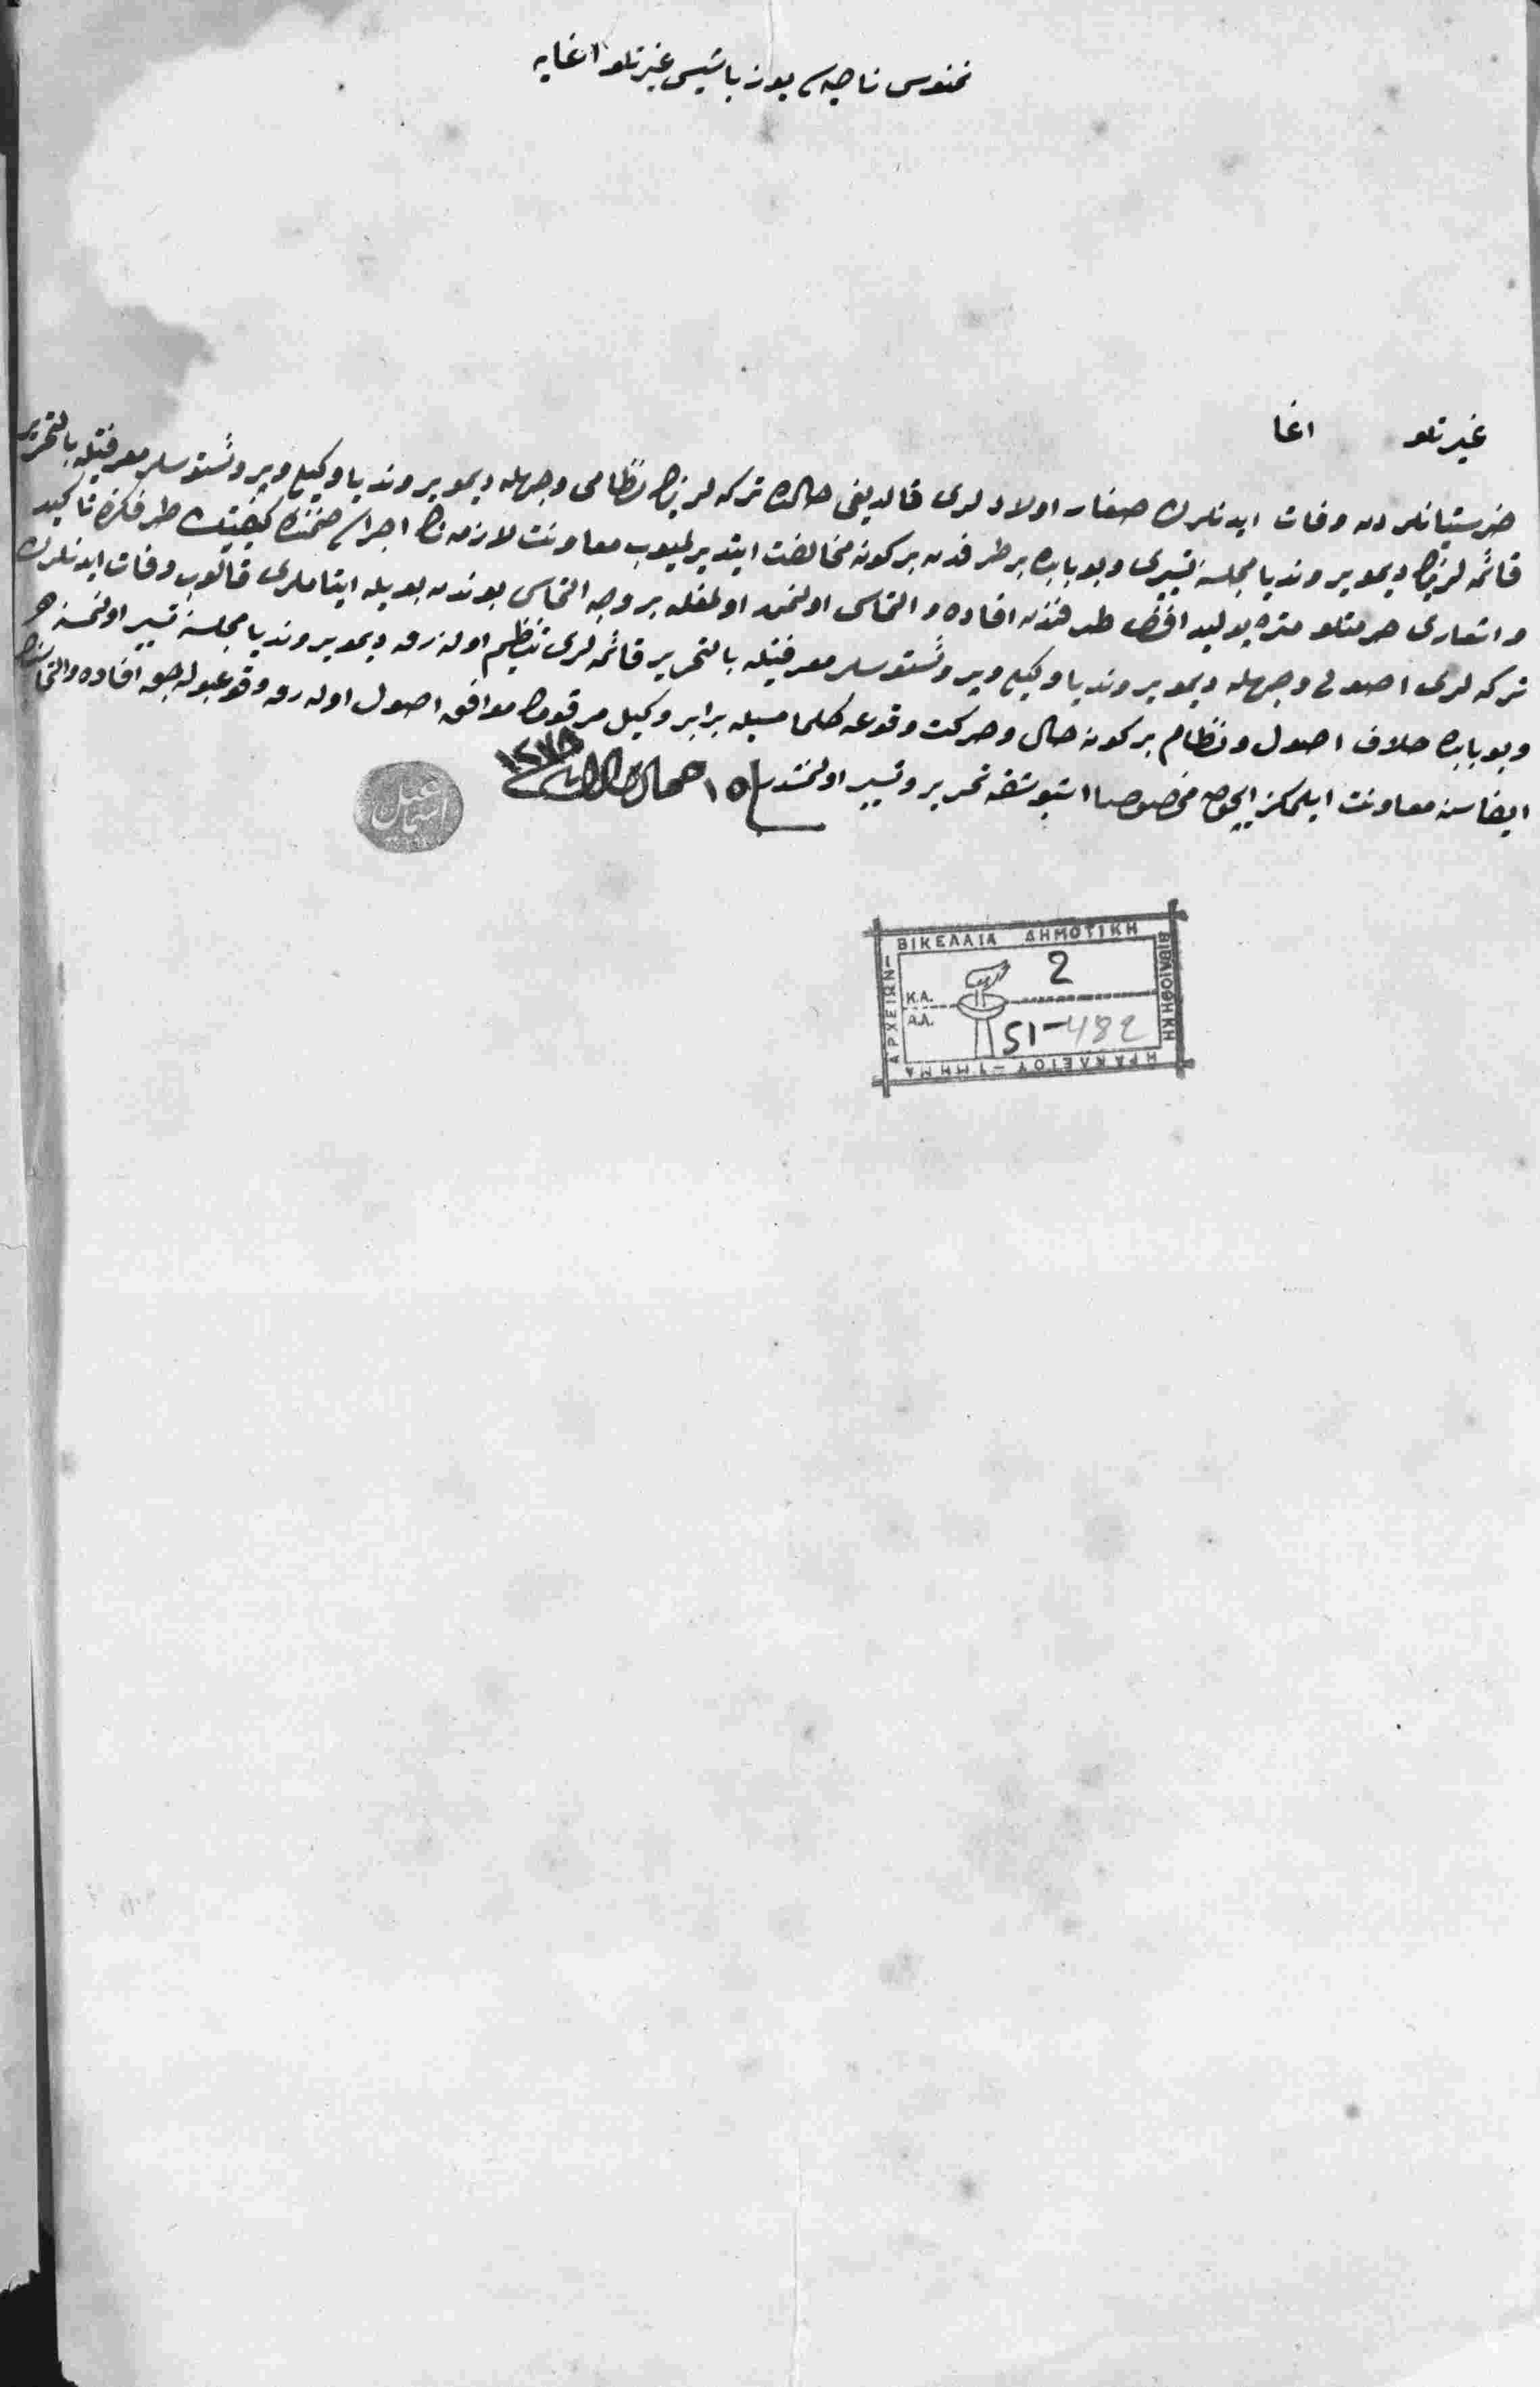 ناحيه‌سى يوزباشيسى غيرتلو اغايه
غيرتلو اغا
خرستيانلردن وفات ايدنلرك صغار اولادلرى قالديغى حالده تركه‌لرينك نظامى وجهله ديمويرونديا وكيلى وپروئستوسلر معرفتيله بالتحرير
قائمه‌لرينك ديمويرونديا مجلسنه تسييرى وبو بابده بر طرفدن بر كونه مخالفت ايتديرلميوب معاونت لازمه‌نك اجراسى ضمننده كيفيتك طرفكزه تأكيد
واشعارى حرمتلو متره‌پوليد افندى طرفندن افاده والتماس اولنمش اولمغله بر وجه التماس بوندن بويله ايتاملرى قالوب وفات ايدنلرك
تركه‌لرى اصولى وجهله ديمويرونديا وكيلى وپروئستوسلر معرفتيله بالتحرير قائمه‌لرى تنظيم اولنه‌رق ديمويرونديا مجلسنه تسيير اولنمسنه
وبو بابده خلاف اصول ونظام بر كونه حال وحركت وقوعه كلمامسيله برابر وكيل مرقومك موافق اصول اوله‌رق وقوعبوله‌جق افاده والتماسنك
ايفاسنه معاونت ايلمكز ايچون مخصوصا اشبو شقه تحرير وتسيير اولنمشدر ١٥ ١٢٧٨
اسماعيل
ΒΙΚΕΛΑΙΑ ΔΗΜΟΤΙΚΗ
ΒΙΒΛΙΟΘΗΚΗ
ΗΡΑΚΛΕΙΟΥ - ΤΜΗΜΑ
ΑΡΧΕΙΩΝ
Κ.Α. 2
Α.Λ. 51-482